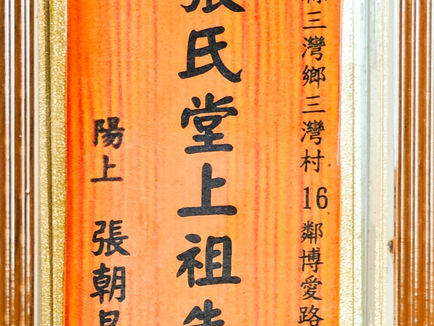 三灣鄉三灣村16鄰博愛路
張氏堂上祖先
陽上 張朝